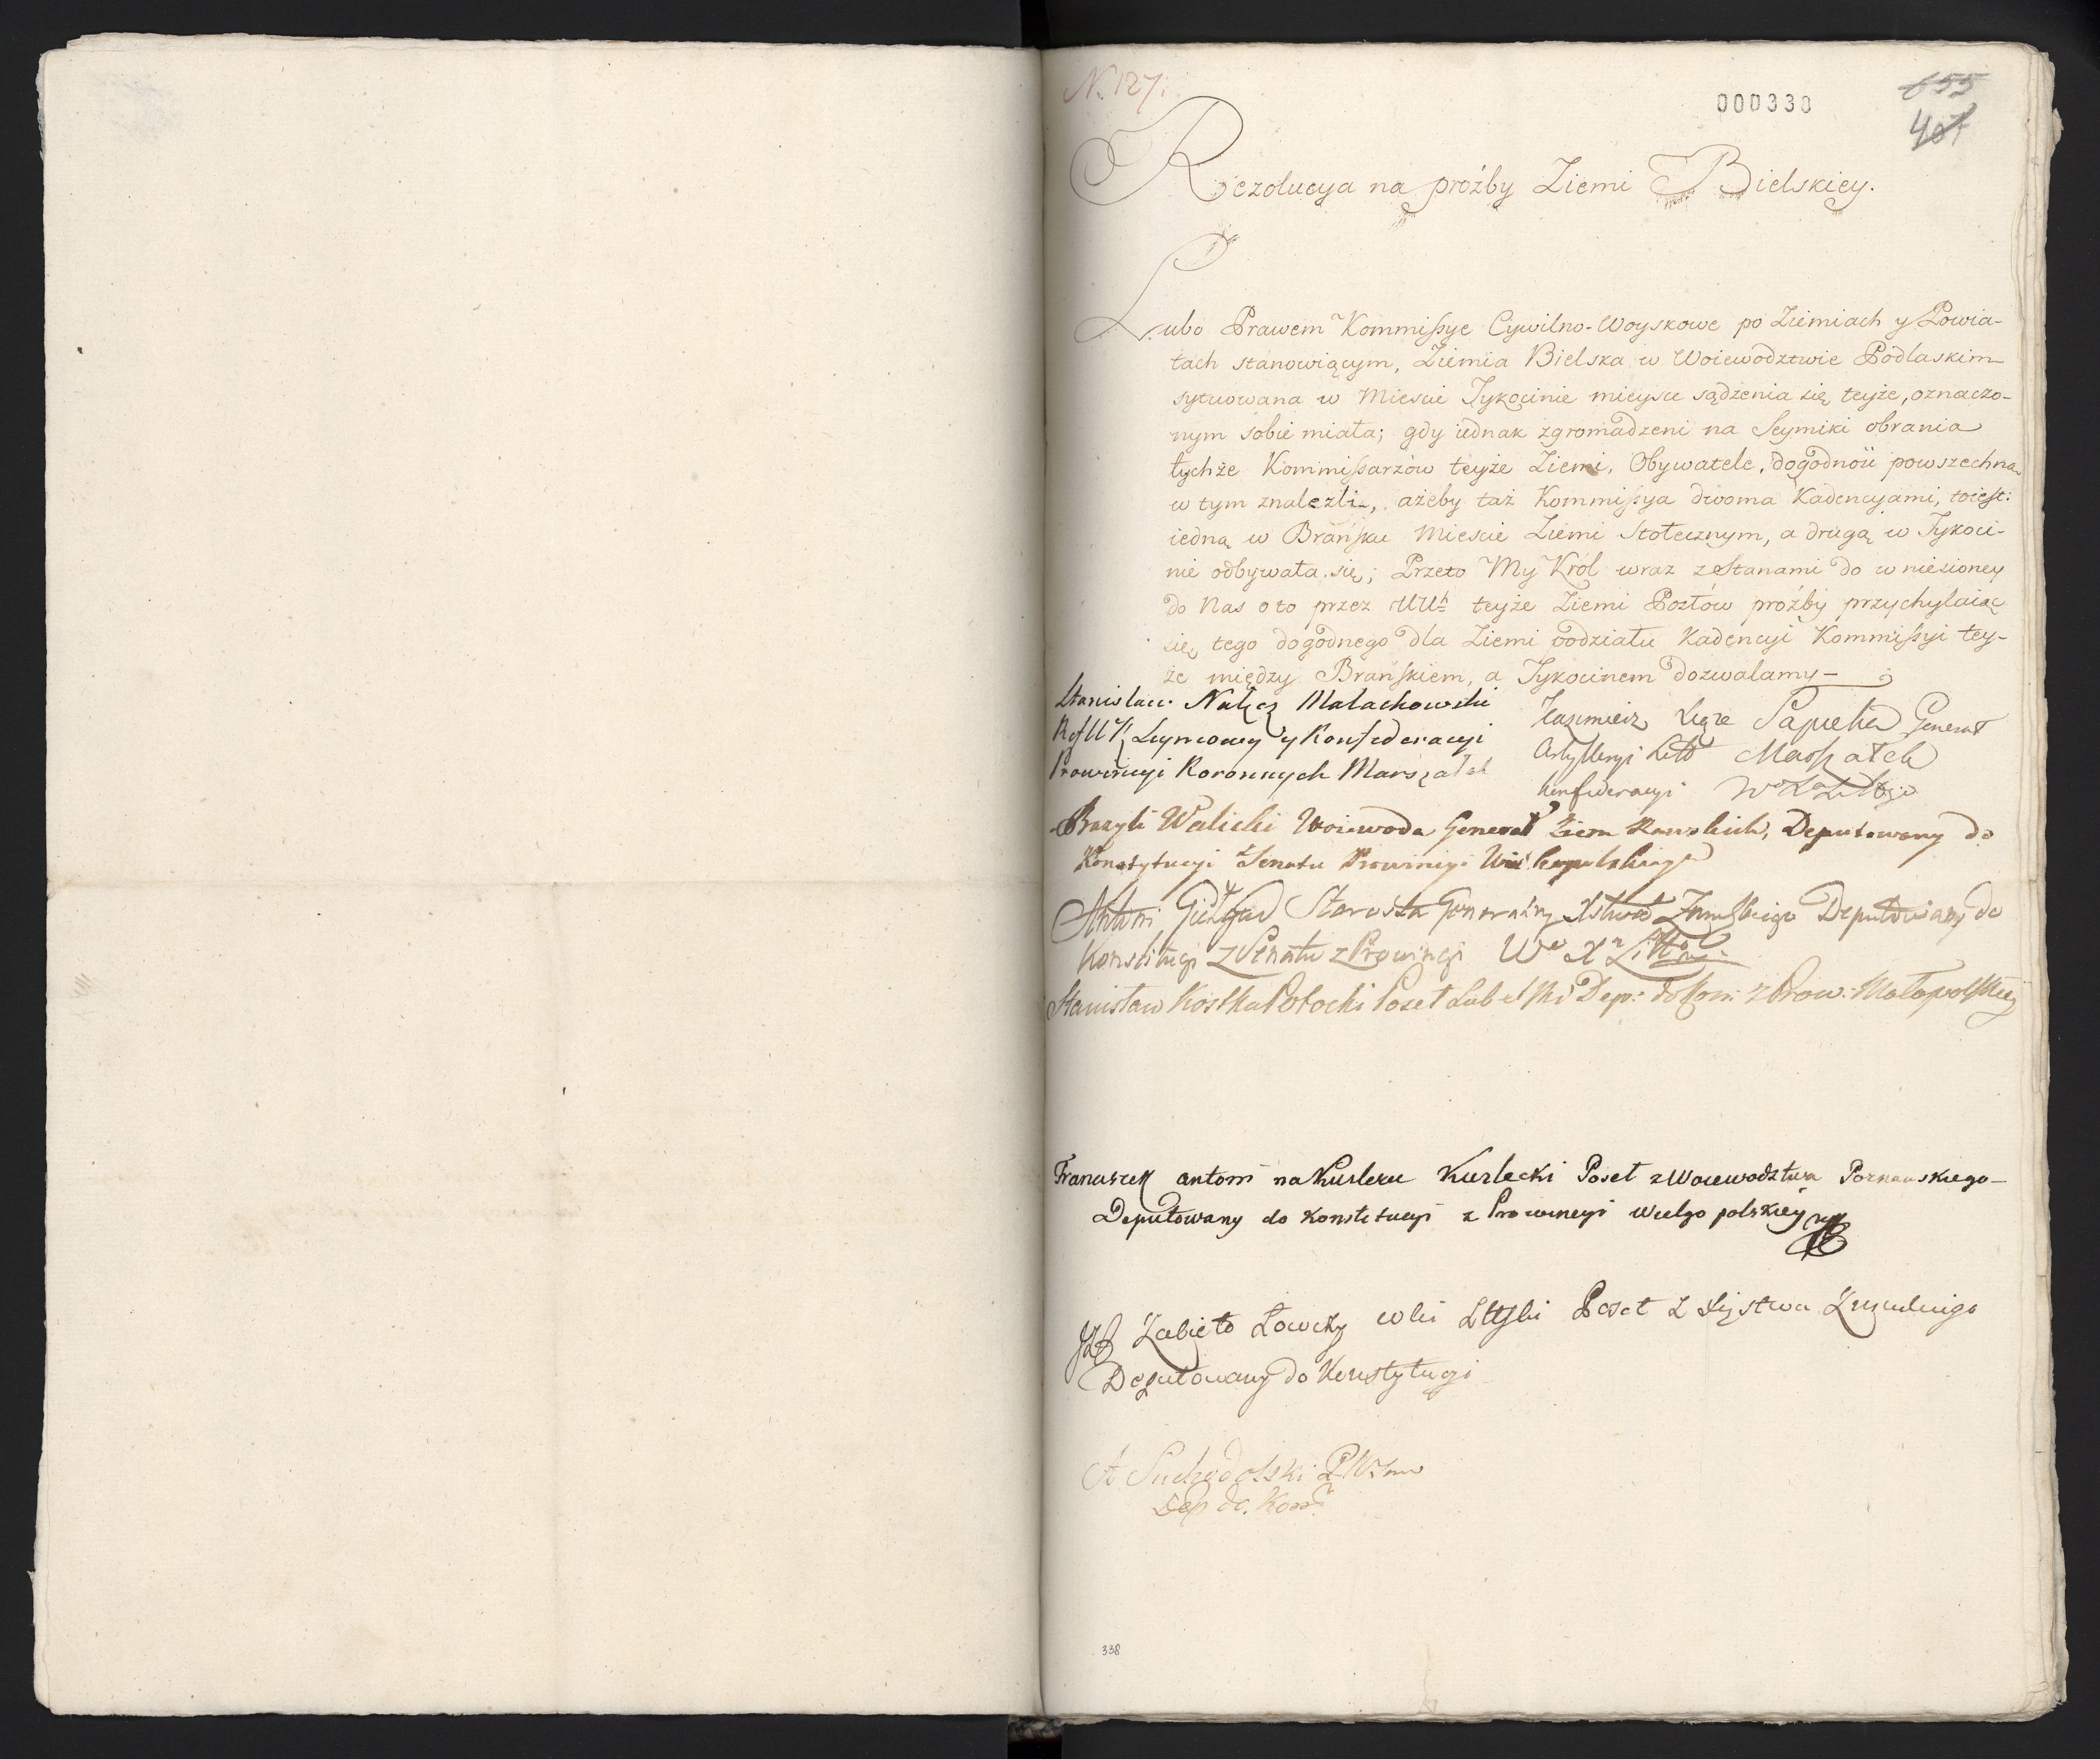 N. 127:
000330
655
407
Rezolucya na prożby Ziemi Bielskiey.
Lubo Prawem Kommissye Cywilno-Woyskowe po Ziemiach y Powia-
tach stanowiącym, Ziemia Bielska w Woiewodztwie Podlaskim
sytuowana w Miescie Tykocinie mieysce sądzenia się teyże, oznaczo-
nym sobie miała; gdy iednak zgromadzeni na Seymiki obrania
tychże Kommissarzów teyże Ziemi, Obywatele, dogodność powszechną
w tym znalezli, ażeby taż Kommissya dwoma Kadencyami, toiest:
iedną w Brańsku Miescie Ziemi Stołecznym, a drugą w Tykoci-
nie odbywała się; Przeto My Król wraz z Stanami do wniesioney
do Nas o to przez UUch teyże Ziemi Posłów prożby przychylaiąc
się, tego dogodnego dla Ziemi podziału Kadencyi Kommissyi tey-
że między Brańskiem, a Tykocinem dozwalamy
Stanisław Nałęcz Małachowski
R W K Seymowy y Konfederacyi
Prowincyi Koronnych Marszałek
Kazimierz Sapieha Generał
Artylleryi Litt Marszałek
konfederacyi W X Litt
Bazyli Walicki Woiewoda Generał Ziem Rawskich, Deputowany do
Konstytucyi z Senatu Prowincyi Wielkopolskiey
Antoni Giełgud Starosta Generalny Xstwa Zmudzkiego Deputowany do
Konstitucyi z Senatu z Prowincyi Wo Xa Litt
Stanisław Kostka Potocki Poseł Lubelski Dep: do Kon: z Prow: Małopolskiey
Franciszek antoni na Kurleku Kurlecki Poseł z Woiewodztwa Poznanskiego
Deputowany do Konstitucyi z Prowincyi wielgo polskiey
Zabiełło Łowczy wki Littski Poseł z Xięstwa Zmudzkiego
Deputowany do Konstytucyi
A Suchodolski P. W. Smo
Dep do. Kons:
338